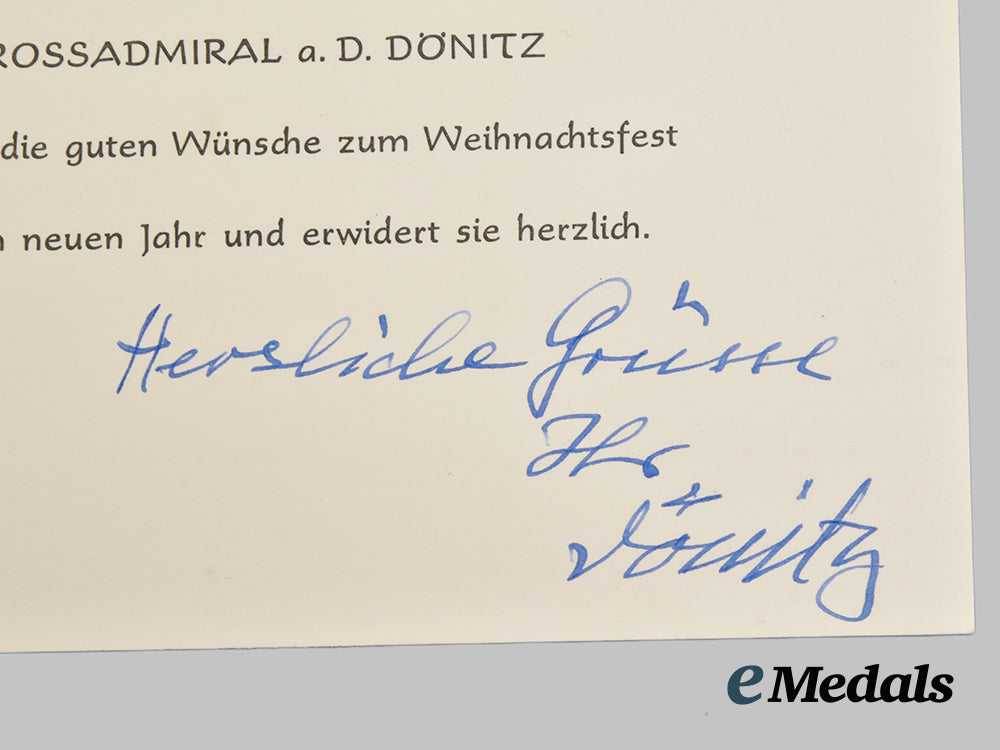 ROSSADMIRAL a. D. DÖNITZ
die guten Wünsche zum Weihnachtsfest
n neuen Jahr und erwidert sie herzlich.
Herzliche Grüsse
Ihr
Dönitz
eMedals